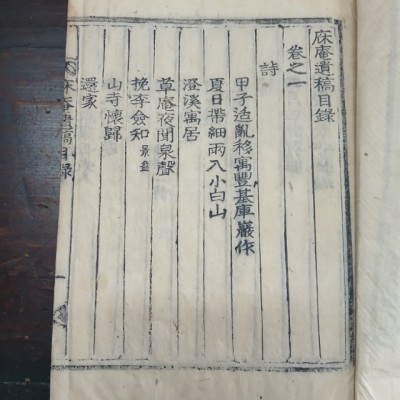 庥庵遺稿目錄
卷之一
詩
甲子造亂移寓豐基庫巖作
夏日帶細雨入小白山
澄溪寓居
草庵夜聞泉聲
挽李僉知
山寺懷歸
還家
庵遺稿目錄
一